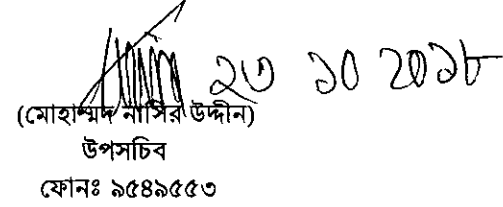 ২৩ ১০ ২০১৮
(মোহাম্মদ নাসির উদ্দীন)
উপসচিব
ফোনঃ ৯৫৪৯৫৫৩